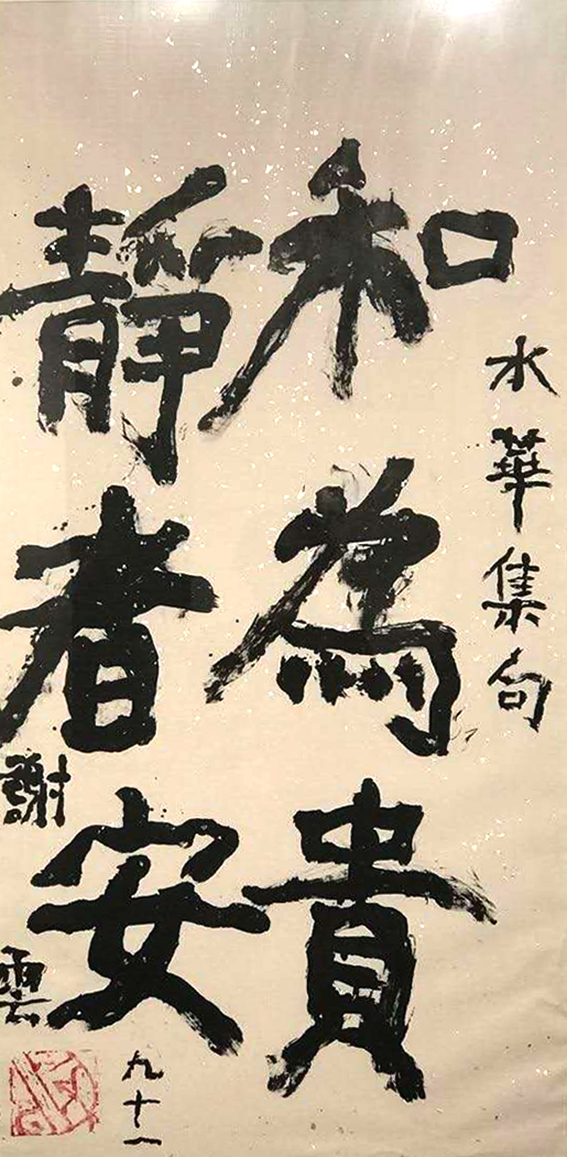 水華集句
和為貴
靜者安
謝雲
九十一